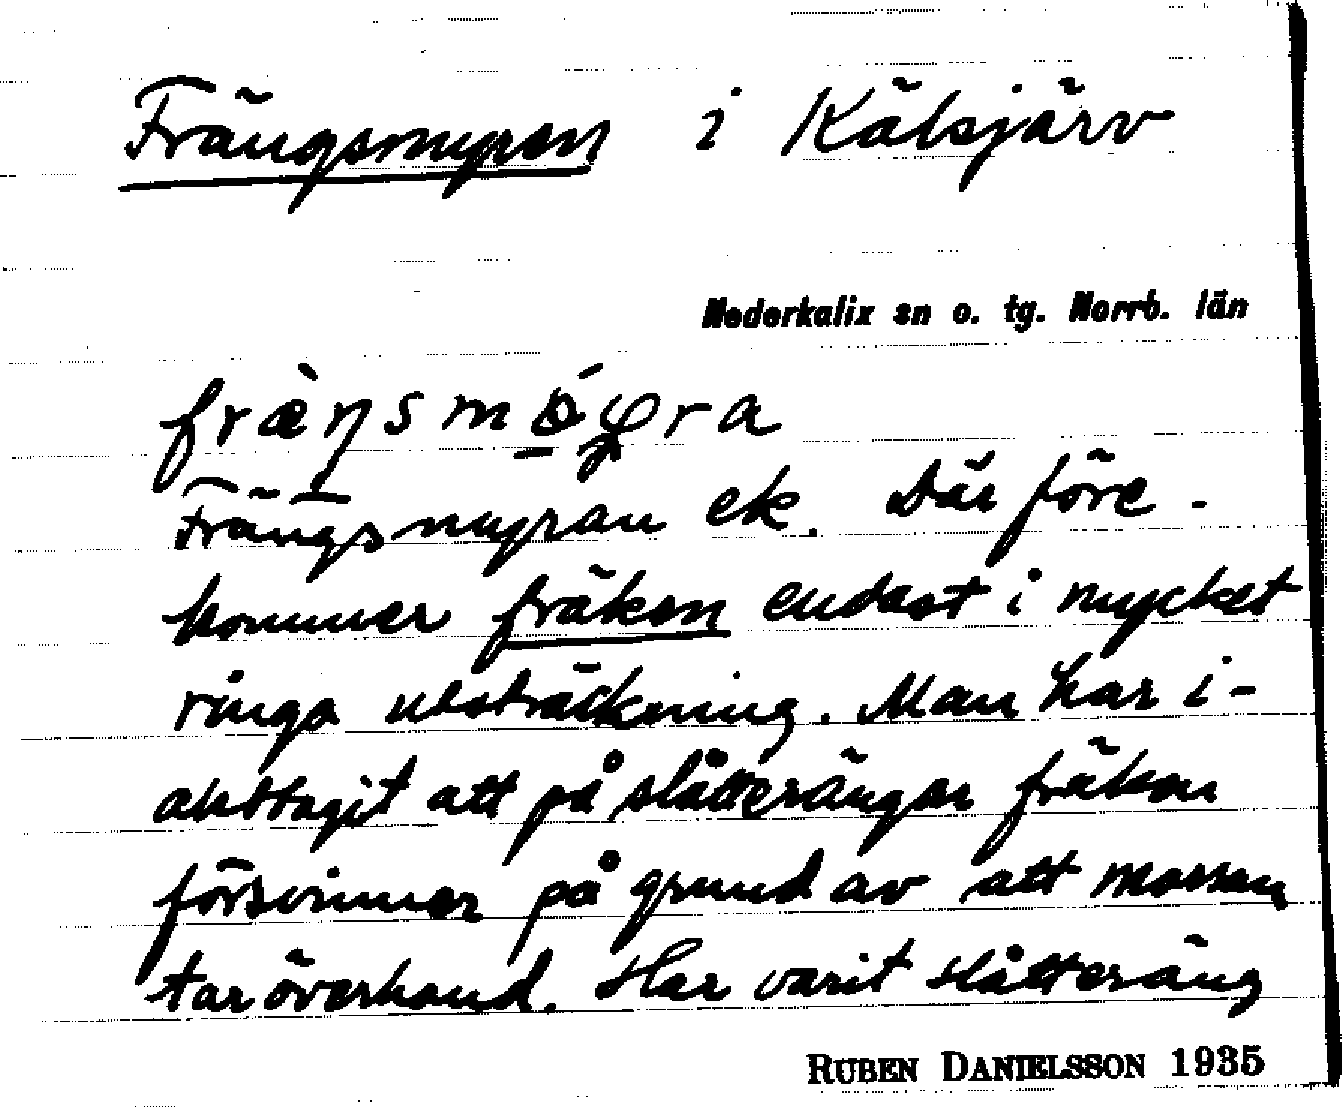 Frängsmyren i Kälsjärv
Nederkalix sn o. tg. Norrb. län
Frängsmyran ek. Där före-
kommer fräken endast i mycket
ringa utsträckning. Man har i-
akttagit att på slåtterängar fräken
försvinner på grund av att mossan
tar överhand. Har varit slåtteräng
RUBEN DANIELSSON 1935